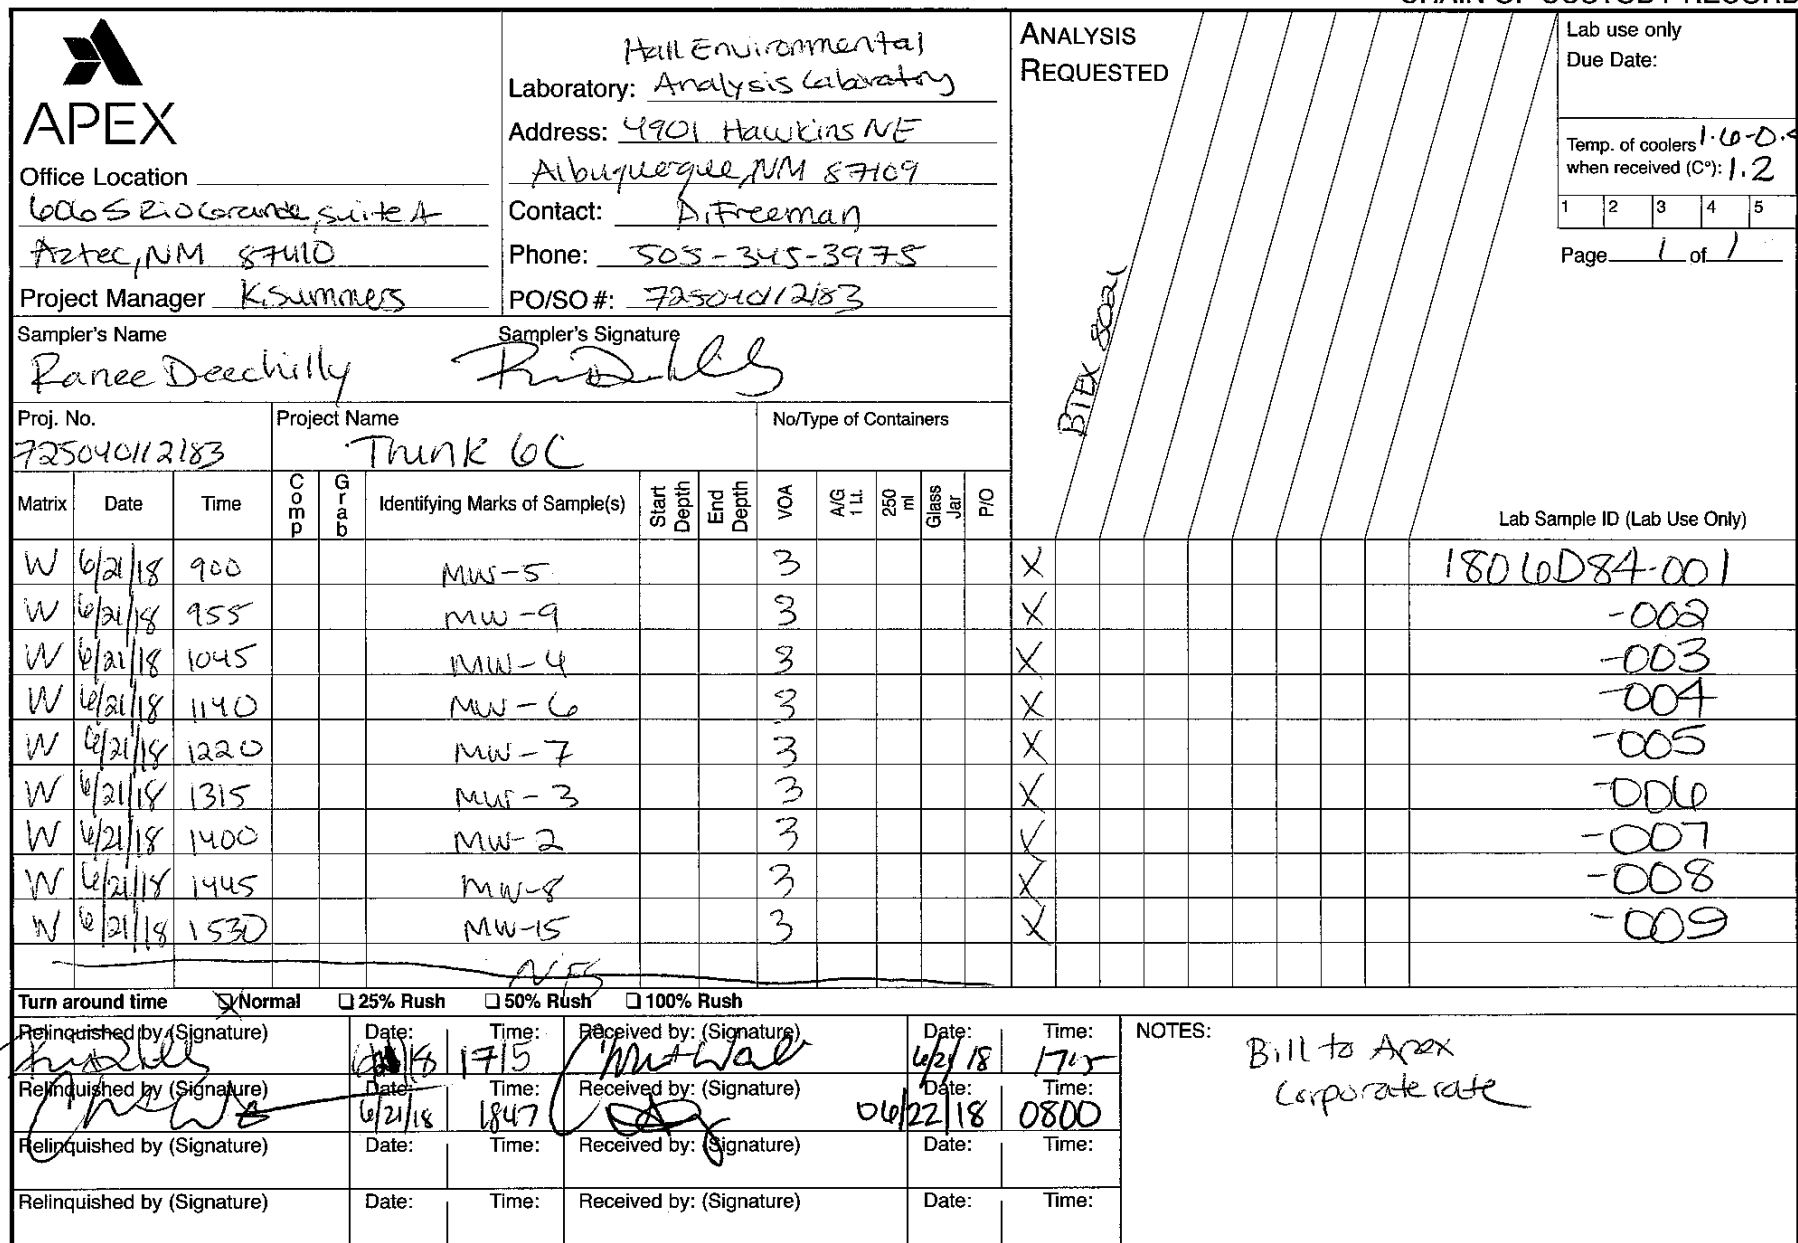 CHAIN OF CUSTODY RECORD
APEX
Office Location
606 S Rio Grande, Suite A
Aztec, NM 87410
Project Manager K. Summers
Hall Environmental
Laboratory: Analysis Laboratory
Address: 4901 Hawkins NE
Albuquerque, NM 87109
Contact: A. Freeman
Phone: 505-345-3975
PO/SO #: 725040112183
ANALYSIS
REQUESTED
BTEX 8021
Lab use only
Due Date:
Temp. of coolers 1.6-0.4
when received (C°): 1.2
1 2 3 4 5
Page 1 of 1
Sampler's Name
Ranee Deechilly
Sampler's Signature
Proj. No.
725040112183
Project Name
Thunk 6C
No/Type of Containers
Matrix Date Time Comp Grab Identifying Marks of Sample(s) Start Depth End Depth VOA A/G 1 Lt. 250 ml Glass Jar P/O Lab Sample ID (Lab Use Only)
W 6/21/18 900 MW-5 3 X 1806D84-001
W 6/21/18 955 MW-9 3 X -002
W 6/21/18 1045 MW-4 3 X -003
W 6/21/18 1140 MW-6 3 X -004
W 6/21/18 1220 MW-7 3 X -005
W 6/21/18 1315 MW-3 3 X -006
W 6/21/18 1400 MW-2 3 X -007
W 6/21/18 1445 MW-8 3 X -008
W 6/21/18 1530 MW-15 3 X -009
NFS
Turn around time Normal 25% Rush 50% Rush 100% Rush
Relinquished by (Signature) Date: Time: 1715 Received by: (Signature) Date: 6/21/18 Time: 1715
Relinquished by (Signature) Date: 6/21/18 Time: 1847 Received by: (Signature) Date: 06/22/18 Time: 0800
Relinquished by (Signature) Date: Time: Received by: (Signature) Date: Time:
Relinquished by (Signature) Date: Time: Received by: (Signature) Date: Time:
NOTES:
Bill to Apex
Corporate rate